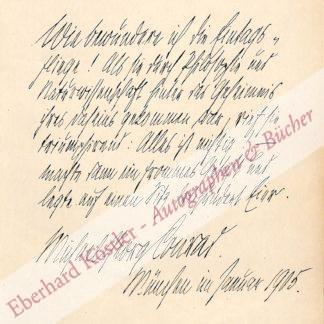 Wie bewundere ich die Eintags-
fliege! Als sie durch Philosophie und
Naturwissenschaft hinter das Geheimnis
ihres Daseins gekommen war, rief sie
triumphirend: Alles ist nichtig
machte dann ein frommes und
legte auf einen Sitz hundert Eier.
Michael Georg Conrad.
München im Januar 1905.
Eberhard Köstler - Autographen & Bücher